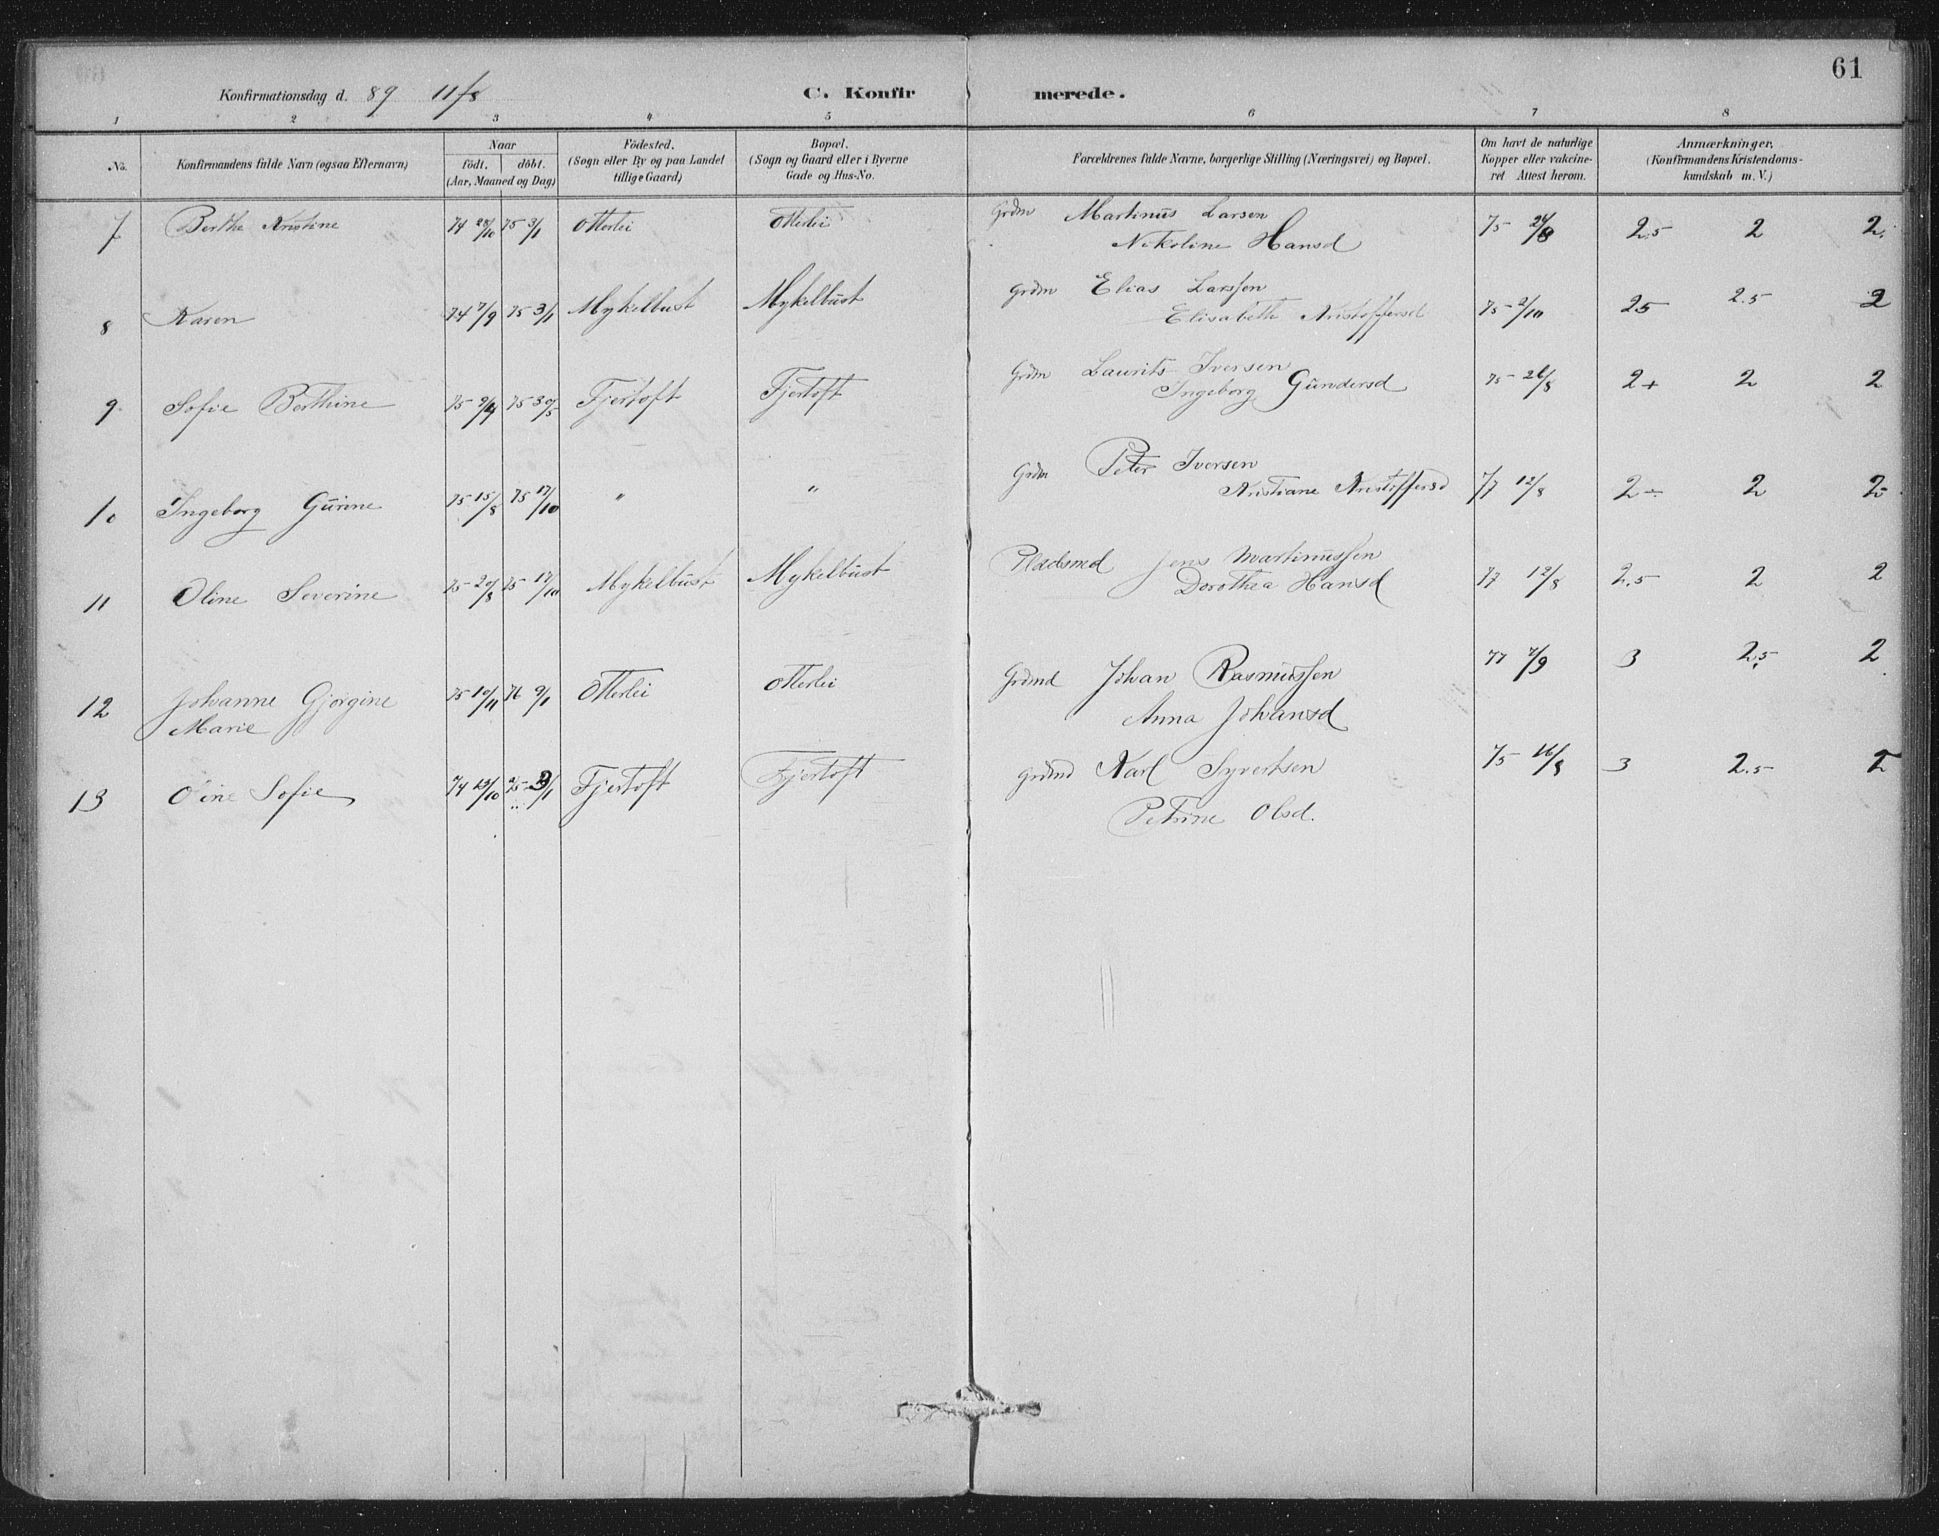 61
Konfirmationsdag d. 89 11/8 C. Konfirmerede.
1 2 3 4 5 6 7 8
No. Konfirmandens fulde Navn (ogsaa Efternavn) Naar født. døbt. (Aar, Maaned og Dag) Fødested. (Sogn eller By og paa Landet tillige Gaard) Bopæl. (Sogn og Gaard eller i Byerne Gade og Hus-No. Forældrenes fulde Navne, borgerlige Stilling (Næringsvei) og Bopæl. Om havt de naturlige Kopper eller vakcineret Attest herom. Anmærkninger. (Konfirmandens Kristendomskundskab m. V.)
7 Berthe Kristine 74 28/10 75 3/1 Otterlei Otterlei Grdm Martinus Larsen 75 24/8 2.5 2 2.
Nikoline Hansd
8 Karen 74 7/9 75 3/1 Mykelbust Mykelbust Grdm Elias Larssen 75 2/10 25 2.5 2
Elisabeth Kristoffersd
9 Sofie Berthine 75 9/4 75 30/5 Fjertoft Fjertoft Grdm Laurits Iversen 75 26/8 2+ 2 2
Ingeborg Gundersd
10 Ingeborg Gurine 75 15/8 75 17/10 " " Grdm Peter Iversen 77 12/8 2÷ 2 2-
Kristiane Kristoffersd
11 Oline Severine 75 20/8 75 17/10 Mykelbust Mykelbust Pladsmd Jens Martinussen 77 12/8 2.5 2 2
Dorothea Hansd
12 Johanne Gjørgine 75 10/11 76 9/1 Otterlei Otterlei Grdmd Johan Rasmussen 77 7/9 3 2.5 2
Marie Anna Johansd
13 Oline Sofie 74 13/10 75 3/1 Fjertoft Fjertoft Grdmd Karl Syvertsen 75 16/8 3 2.5 2
Petrine Olsd.